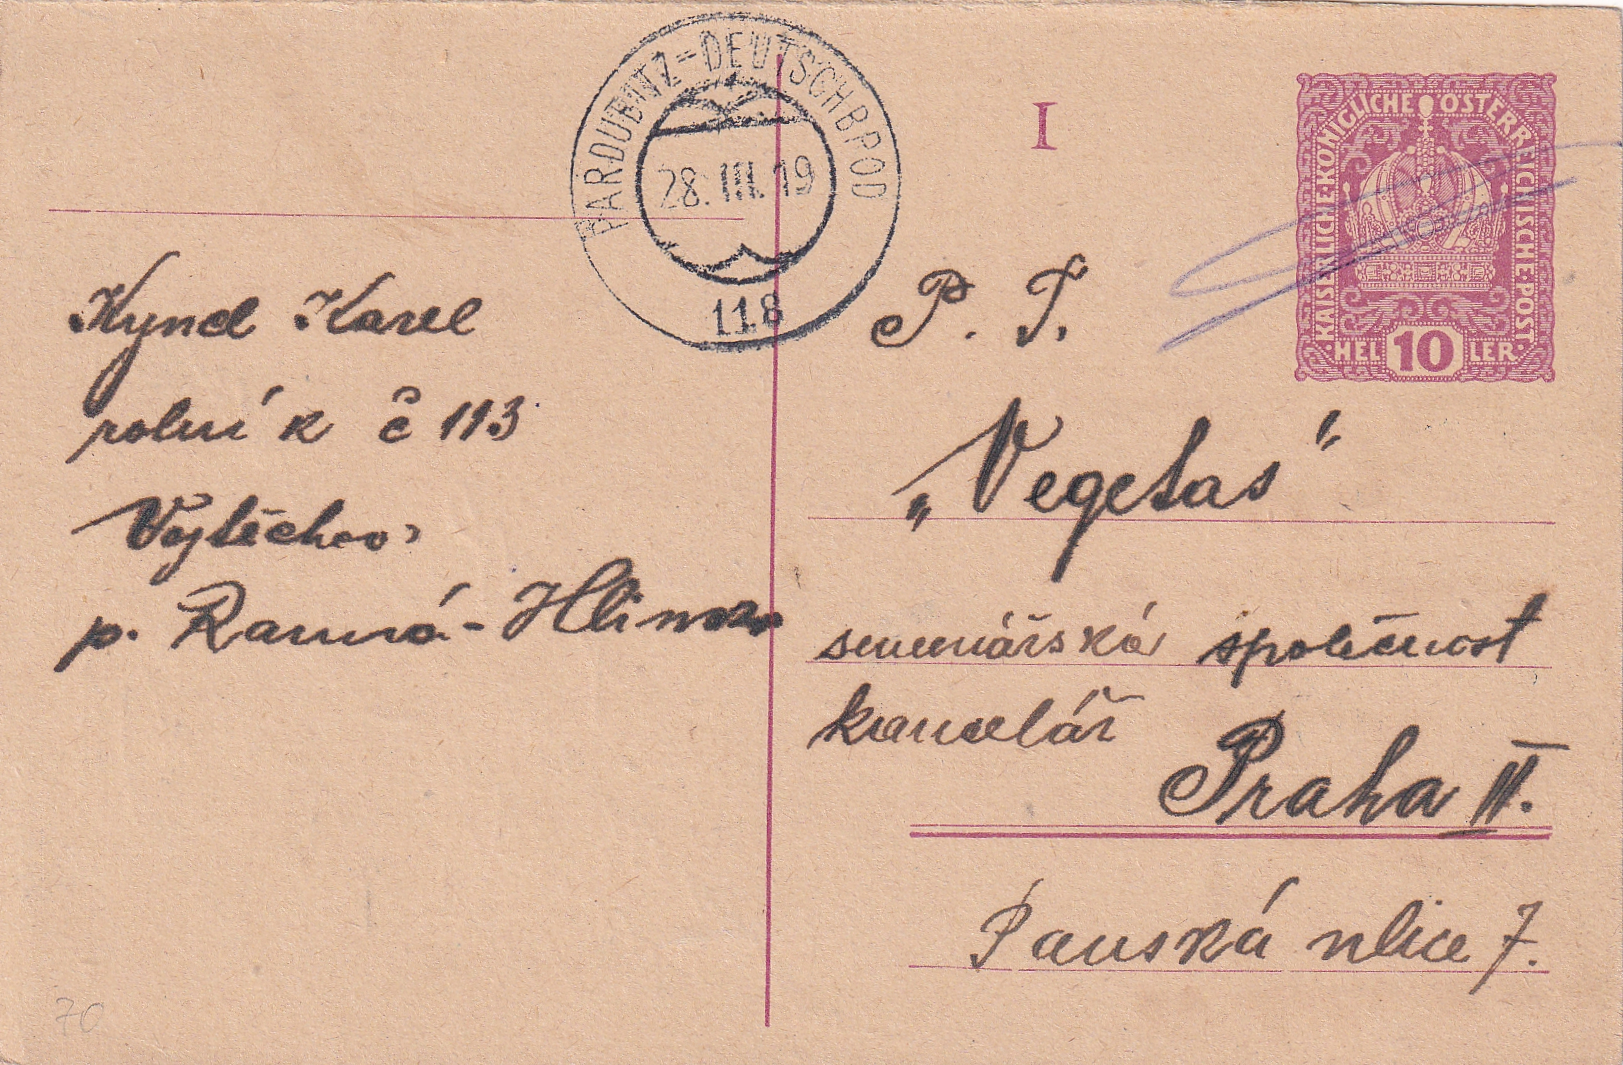 PARDUBITZ=DEUTSCHBROD
28.III.19
118
I
KAISERLICHE·KÖNIGLICHE ÖSTERREICHISCHE·POST·
·HEL 10 LER·
Kyncl Karel
rolník č 113
Vojtěchov
p. Ranná-Hlinsko
P. T.
„Vegetas"
semenářská společnost
kancelář
Praha II.
Panská ulice 7.
70